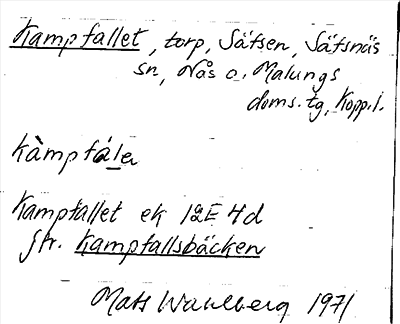 Kampfallet, torp, Säfsen, Säfsnäs
sn, Nås o. Malungs
doms.tg, Kopp.l.
kàmpfála
Kampfallet ek 12E 4d
jfr. Kampfallsbäcken
Mats Wahlberg 1971